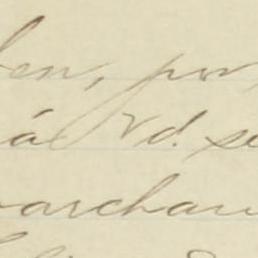 ben, por
á Vd. se
marchan